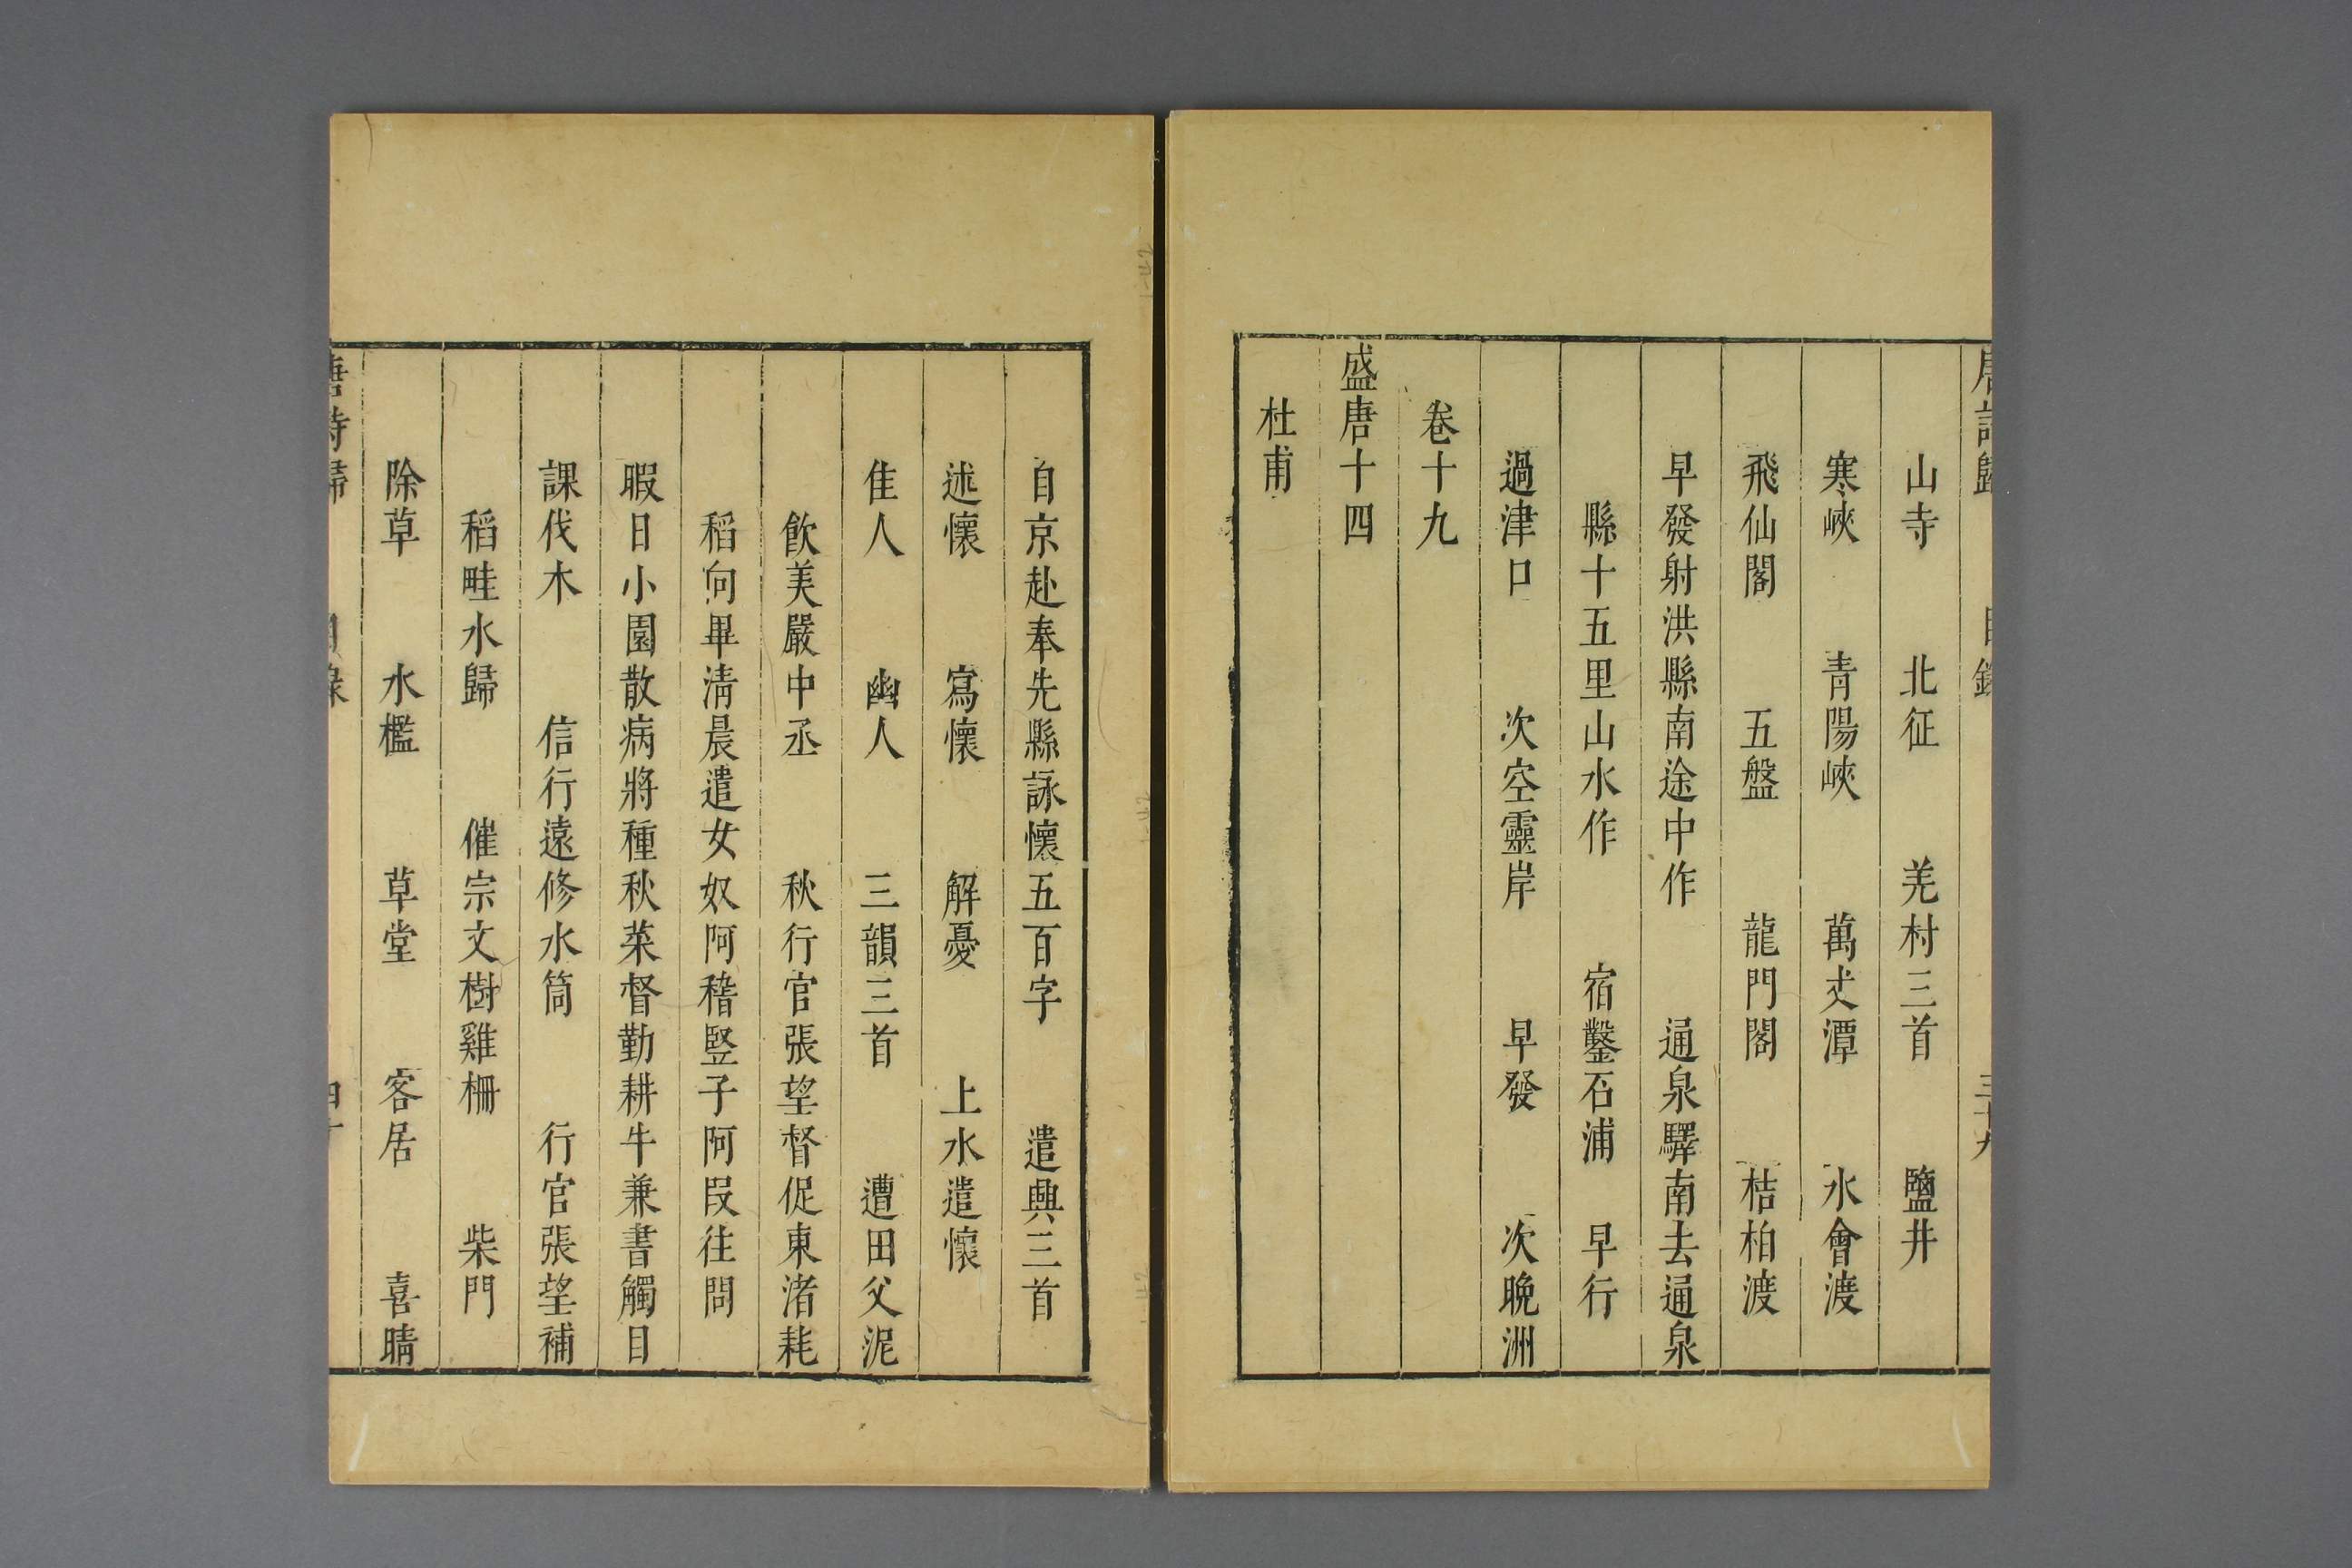 唐詩歸 目錄 三十九
山寺 北征 羌村三首 鹽井
寒峽 青陽峽 萬丈潭 水會渡
飛仙閣 五盤 龍門閣 桔柏渡
早發射洪縣南途中作 通泉驛南去通泉
縣十五里山水作 宿鑿石浦 早行
過津口 次空靈岸 早發 次晚洲
卷十九
盛唐十四
杜甫
自京赴奉先縣詠懷五百字 遣興三首
述懷 寫懷 解憂 上水遣懷
佳人 幽人 三韻三首 遭田父泥
飲美嚴中丞 秋行官張望督促東渚耗
稻向畢清晨遣女奴阿稽竪子阿段往問
暇日小園散病將種秋菜督勤耕牛兼書觸目
課伐木 信行遠修水筒 行官張望補
稻畦水歸 催宗文樹雞柵 柴門
除草 水檻 草堂 客居 喜晴
唐詩歸 目錄